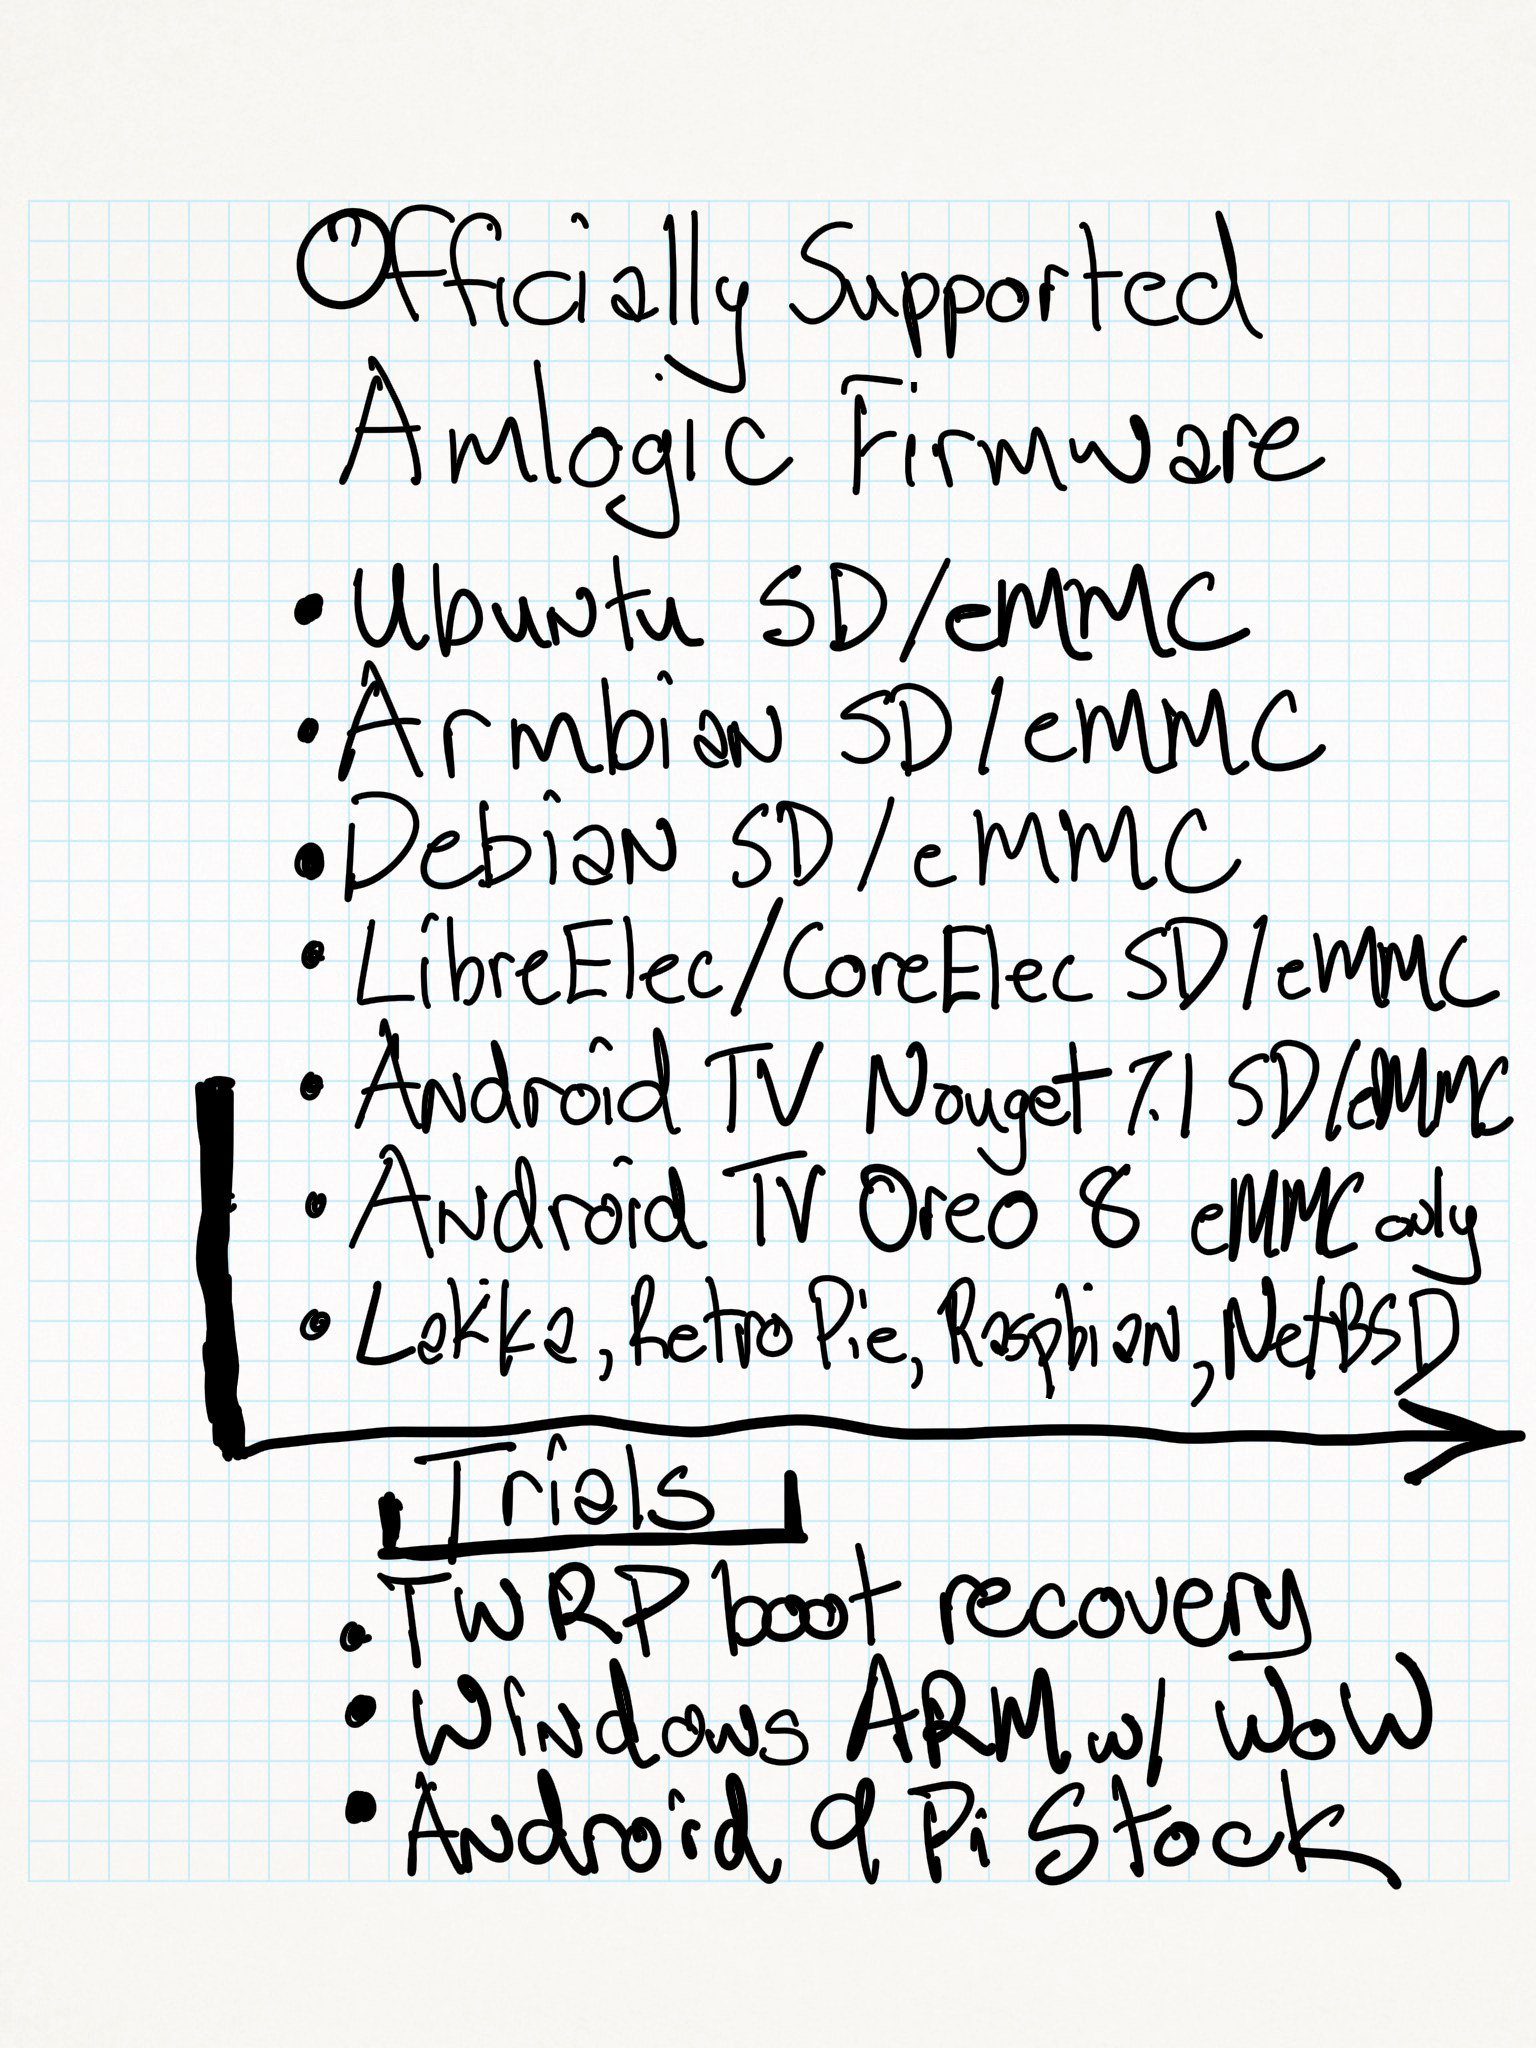 Officially Supported
Amlogic Firmware
• Ubuntu SD/eMMC
• Armbian SD/eMMC
• Debian SD/eMMC
• LibreElec/CoreElec SD/eMMC
• Android TV Nouget 7.1 SD/eMMC
• Android TV Oreo 8 eMMC only
• Lakka, RetroPie, Raspbian, NetBSD
Trials
• TWRP boot recovery
• Windows ARM w/ WoW
• Android 9 Pi Stock